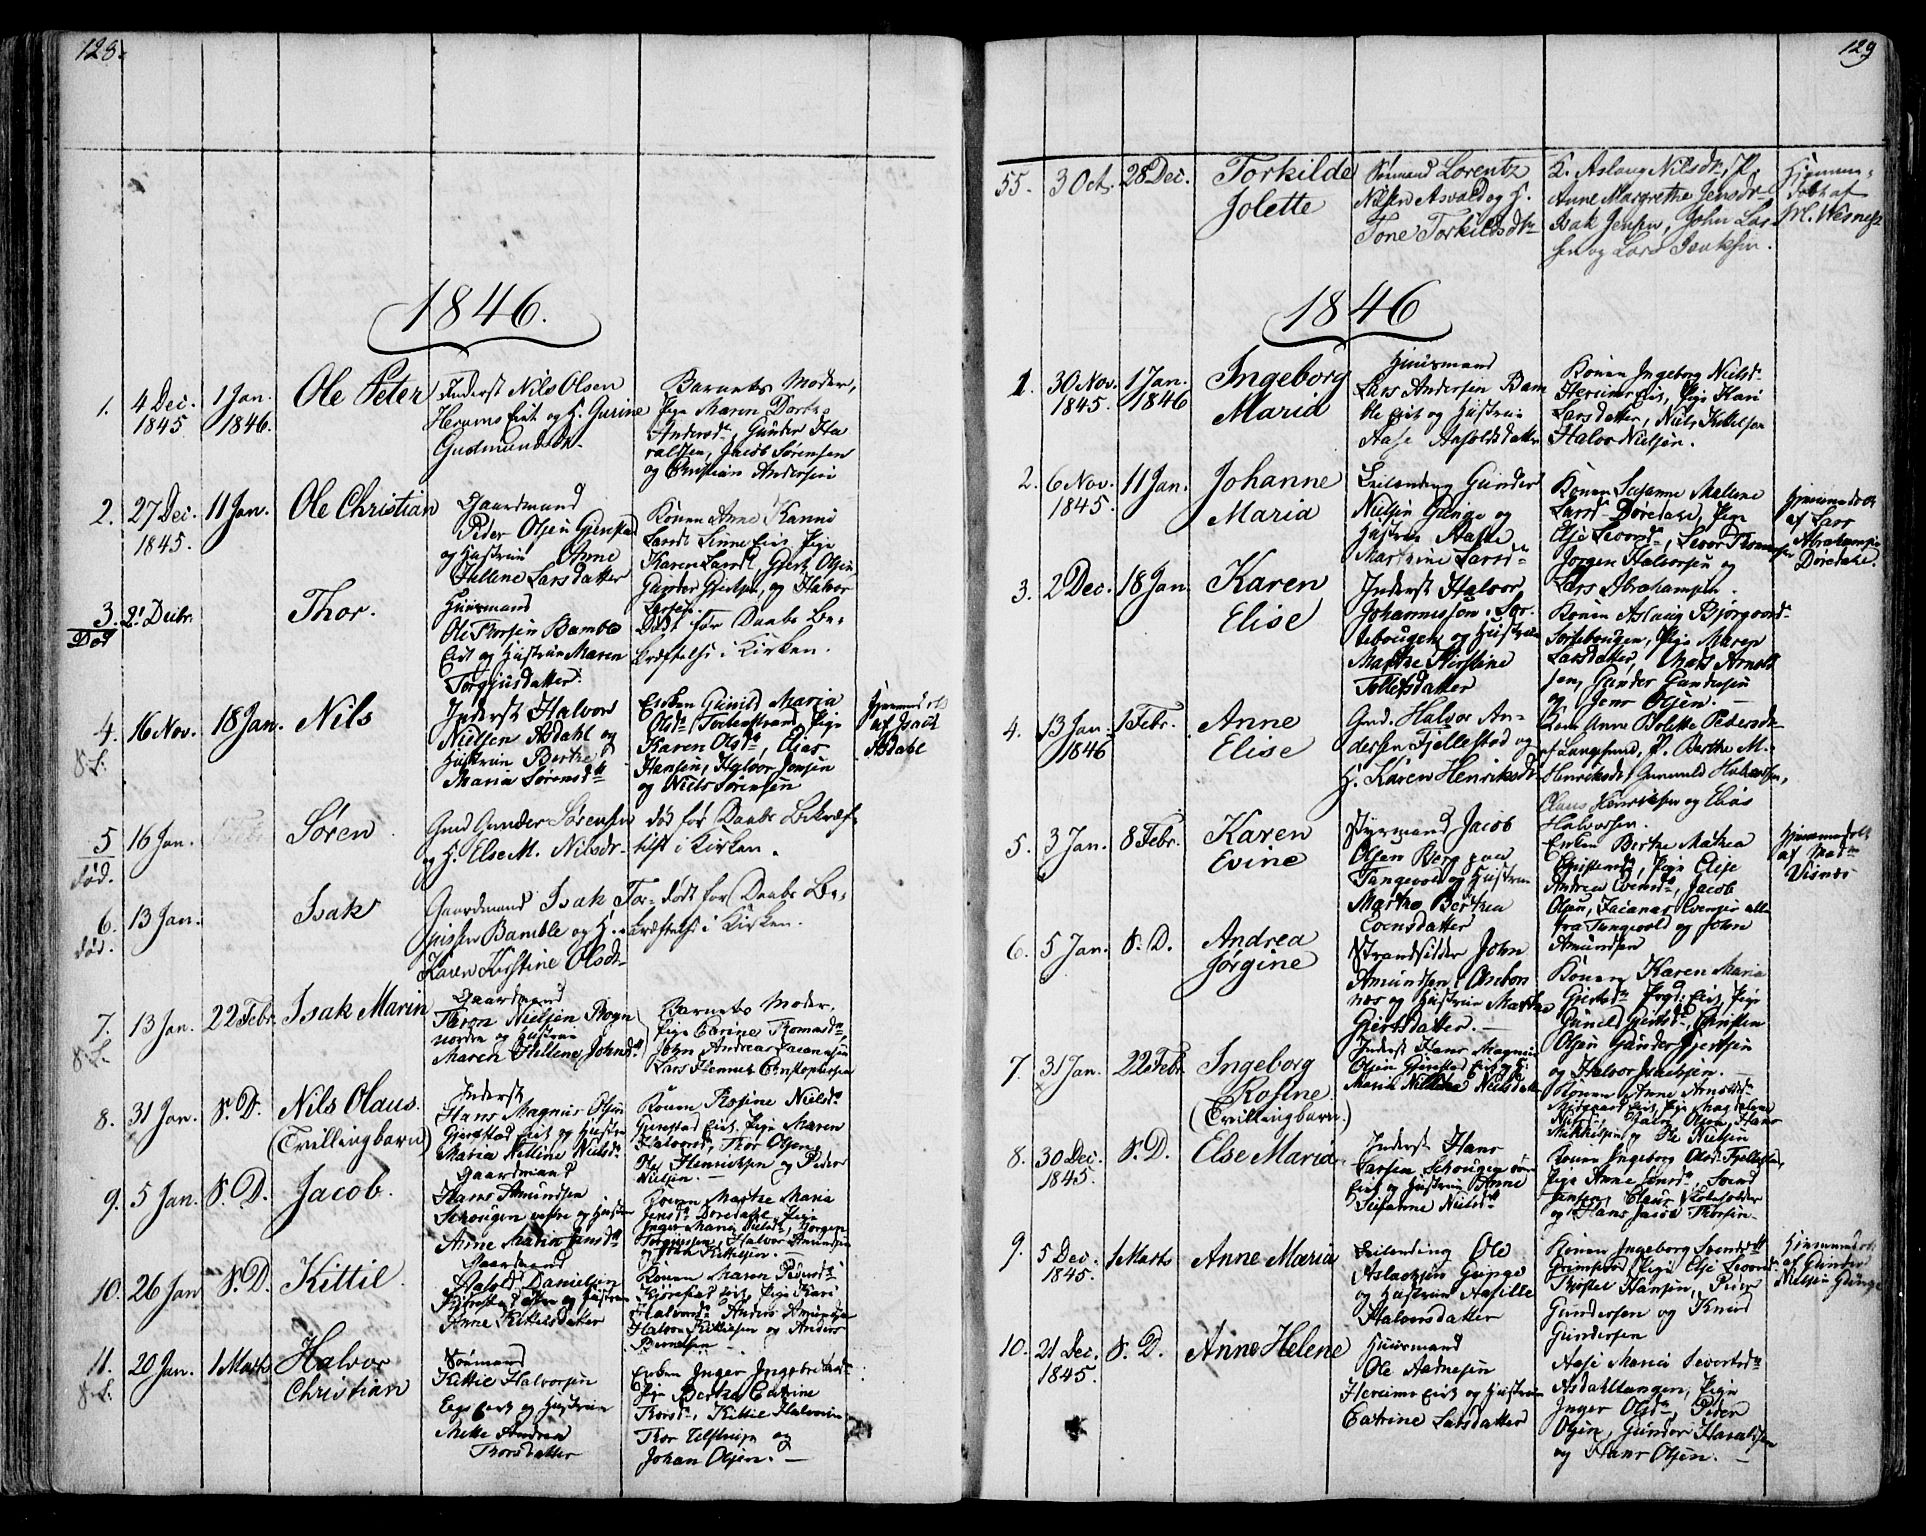 128.
1846.
1.
4 Dec.
1845
1 Jan.
1846.
Ole Peter
Inderst Nils Olsen
Herums Eiet og H. Gurine
Gudmundsdr.
Barnets Moder,
Pige Maren Dorthe
Andersdr., Gunder Ha
raldsen, Jacob Sørensen
og Christian Andersen
2.
27 Dec.
1845.
11 Jan.
Ole Christian
Gaardmand
Peder Olsen Gjerstad
og Hustrue Anne
Hellene Larsdatter
Konen Anne
Karen Larsd., Gjert Olsen
Gunder Gjertsen, og Halvor
Larsen.
3.
Død
21 Decbr.
Thor.
Huusmand
Ole Thorsen Bamble
Eiet og Hustrue Maren
Torgjusdatter.
Død før Daabs Be-
kræftelse i Kirken.
4.
16 Nov.
18 Jan.
Nils
Inderst Halvor
Nielsen Asdahl og
Hustrue Berthe
Maria Sørensdtr
Enken Gunild Maria
Olsdr. Pige
Karen Olsdr, Elias
Hansen, Halvor Jonsen
og Niels Sørensen
Hjemmedøbt
af Isak
Asdahl
5
død.
16 Jan.
Søren
Gmd Gunder Sørensen
og H. Else M. Nilsdr.
død før Daabs Bekræf-
telse i Kirken.
6.
død.
13 Jan.
Isak
Gaardmand Isak Tor-
Bamble og H.
Karen Kirstine Olsdr.
Født før Daabs Be-
kræftelse i Kirken.
7.
13 Jan.
22 Febr.
Isak Marin
Gaardmand
Thron Nielsen Rogn
nordre og Hustrue
Maren Hellene Johnsdtr
Barnets Moder,
Pige Carine Thomasdr,
John Andreas
Lars Christophersen
8.
31 Jan.
S. D.
Nils Olaus.
(Tvillingbarn)
Inderst
Hans Magnus Olsen
Gjerstad Eiet og Hustrue
Maria Nilline Nielsdr.
Konen Rosine Nielsdr
Gjerstad Eiet, Pige Maren
Halvorsdr, Thor Olsen,
Ole Henriksen og Peder
Nielsen.
9.
5 Jan.
S. D.
Jacob.
Gaardmand
Hans Amundsen
Schougen vestre og Hustrue
Anne Maria Jensdtr
Konen Marthe Maria
Jensdr. Døredahl, Pige
Inger Maria Nielsdr, Jørgen
Halvor Amundsen
og John Kittilsen.
10.
26 Jan
S. D.
Kittil
Gaardmand
Halvor Danielsen
Gjerstad østre og Hustrue
Anne Kittelsdatter
Konen Maren Pedersdr.
Gjerstad Eiet, Pige Kari
Halvorsdr. Anders Amundsen
Halvor Kittilsen og Anders
11.
20 Jan.
1 Marts
Halvor
Christian
Sømand
Kittil Halvorsen
Eiet og Hustrue
Mette Andrea
Thorsdatter
Enken Inger Ingebretsdr
Pige Berthe Catrine
Thorsdr, Kittil Halvorsen
Thor og
Johan Olsen.
129
55.
3 Oct.
28 Dec.
Torkilde
Jolette
Sømand Lorentz
Nilsen Asvald og H.
Tone Torkildsdr
K. Aslaug Nilsdr, P.
Anne Margrethe Jensdr
Isak Jensen, John Lar-
sen og Lars Isaksen.
Hjemme-
døbt af
M. Wisness
1846
1
30 Nov.
1845.
1 Jan.
1846
Ingeborg
Maria
Huusmand
Lars Andersen Bam
ble Eiet og Hustrue
Aase Aasoldsdatter
Konen Ingeborg Nielsd.
Herums Eiet, Pige Kari
Larsdatter, Niels Kittilsen
Halvor Nielsen.
2.
6 Nov.
1845.
11 Jan.
Johanne
Maria
Leilending Gunder
Nielsen Gunge og
Hustrue Aaste
Marthine Larsdr
Konen Susanne Malene
Larsd. Døredahl, Pige
Else Sevordr., Sevor Thomassen
Jørgen Halvorsen og
Lars Abrahamsen.
Hjemmedøbt
af Lars
Abrahamsen
Døredahl.
3.
2 Dec.
18 Jan.
Karen
Elise
Inderst Halvor
Johannessen, Sor
tebougen, og Hustrue
Marthe Kirstine
Tollefsdatter
Konen Aslaug Bjørgvordr
Sortebougen, Pige Maren
Larsdatter, Mats Arnold
sen, Gunder Gundersen
og Jens Olsen.
4.
13 Jan.
1846
1 Febr.
Anne
Elise
Gmd. Halvor An-
dersen Fjellestad og
H. Karen Henriksdr
Kone Anne Bolette Pedersdr.
af Langesund, P. Berthe M.
Henriksdr, Gunuld Halvorsen,
Claus Henriksen og Elias
Halvorsen.
5.
3 Jan.
8 Febr.
Karen
Evine
Styrmand Jacob
Olsen Berg paa
Tangvald og Hustrue
Marthe Berthea
Evensdatter
Enken Berthe Mathea
Pige Elise
Andrea Evensdr, Jacob
Olsen, Evensen alle
fra Tangvald og John
Amundsen
Hjemmedøbt
af Madm
Visnæs
6.
5 Jan.
S. D.
Andrea
Jørgine
Strandsidder John
Amundsen
næs og Hustrue Marthe
Gjertsdatter.
Konen Karen Maria
Gjertsdr Eiet, Pige
Gunild Gjertsdr, Christen
Olsen Gunder Gjertsen
og Halvor Isaksen.
7.
31 Jan.
22 Febr.
Ingeborg
Rosine.
(Tvillingbarn.)
Inderst Hans Magnus
Olsen Gjerstad Eiet og H.
Maria Nilline Nielsdatter
Konen Anne Arnoldsdr.
Eiet, Pige Magdalene
Nielsdr. Hans
Mikkelsen og Ole Nielsen
8.
30 Dec.
1845.
S. D.
Else Maria
Inderst Hans
Larsen Schougen
Eiet og Hustrue Anne
Susanne Nielsdtr
Konen Ingeborg Olsdr. Fjellestad
Pige Anne Jensdr. Svend
Jensen, Claus
og Hans Jacob Thorsen.
9.
5 Dec.
1845.
1 Marts
Anne Maria
Leilending Ole
Aslaksen Gunge
og Hustrue Aasille
Halvorsdatter
Konen Ingeborg Svendsdtr
Pige Else Sevordr.
Hansen, Peder
Gundersen og Knud
Gundersen
Hjemmedøbt
af Gunder
Nielsen Gunge
10.
21 Dec.
1845.
S. D.
Anne Helene
Huusmand
Ole Aadnesen
Herums Eiet og Hustrue
Catrine Larsdatter
Aase Maria Sevortsdr
Asdahltangen, Pige
Inger Olsdr, Peder
Olsen, Gunder Haraldsen
og Hans Olsen.